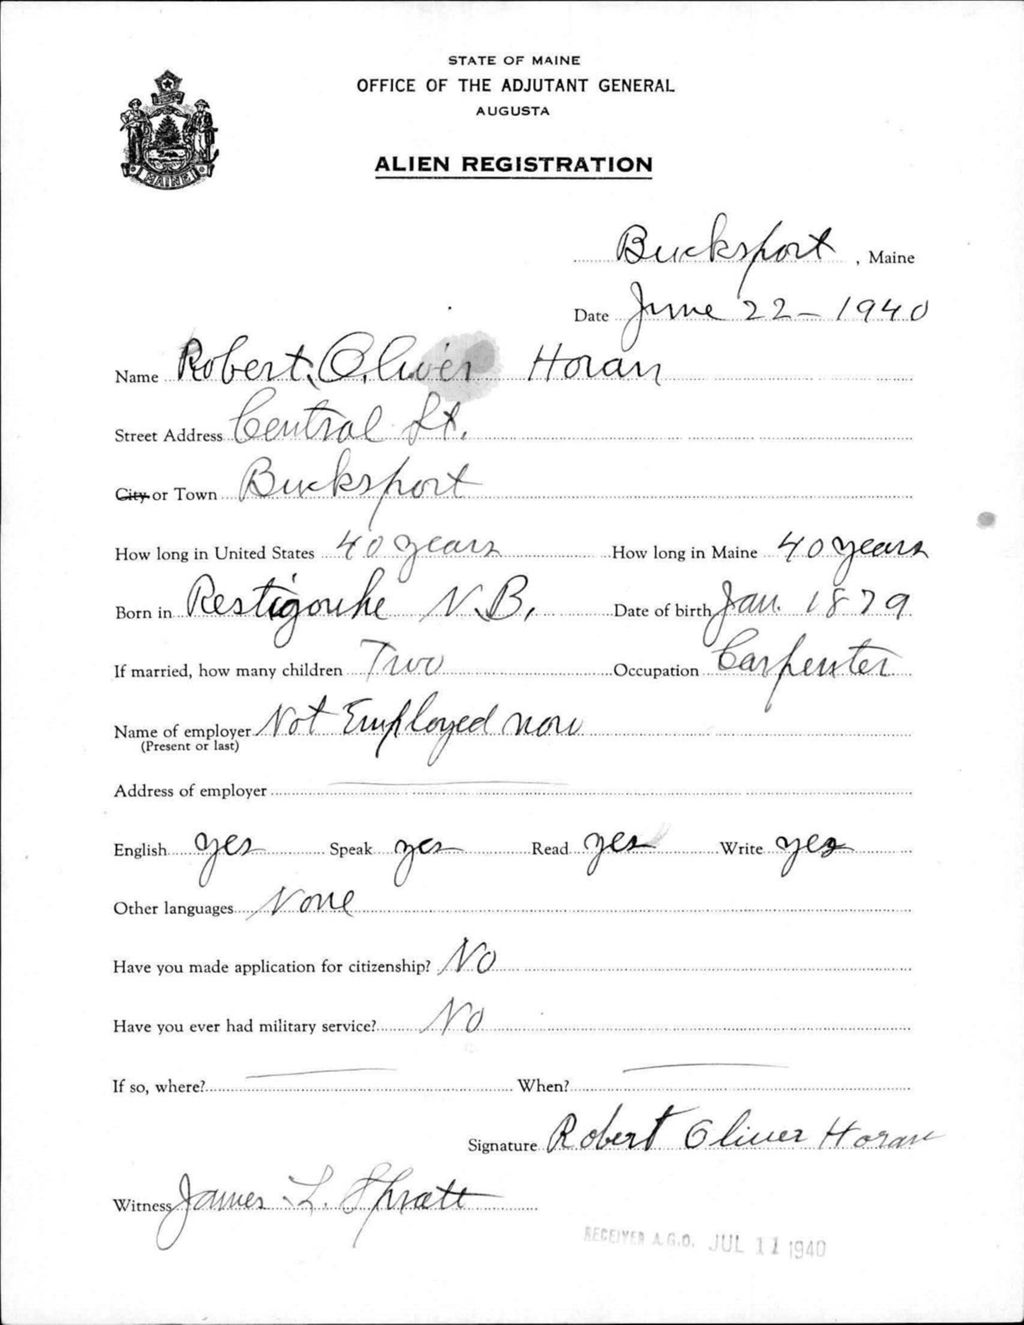 STATE OF MAINE
OFFICE OF THE ADJUTANT GENERAL
AUGUSTA
MAINE
ALIEN REGISTRATION
Bucksport, Maine
Date June 22 - 1940
Name Robert Oliver Horan
Street Address Central St.
City or Town Bucksport
How long in United States 40 years How long in Maine 40 years
Born in Restigouhe N.B. Date of birth Jan. 1879
If married, how many children Two Occupation Carpenter
Name of employer Not Employed now
(Present or last)
Address of employer
English yes Speak yes Read yes Write yes
Other languages None
Have you made application for citizenship? No
Have you ever had military service? No
If so, where? When?
Signature Robert Oliver Horan
Witness James L. Spratt
RECEIVED A.G.O. JUL 11 1940